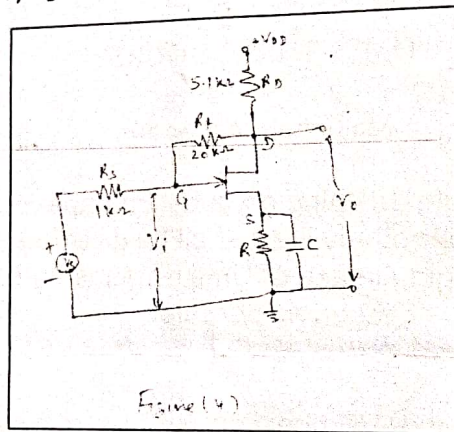 +VDD
5.1kΩ RD
Rf
20kΩ
D
Rs
1kΩ
G
Vi
S
R
C
+
-
Figure (4)